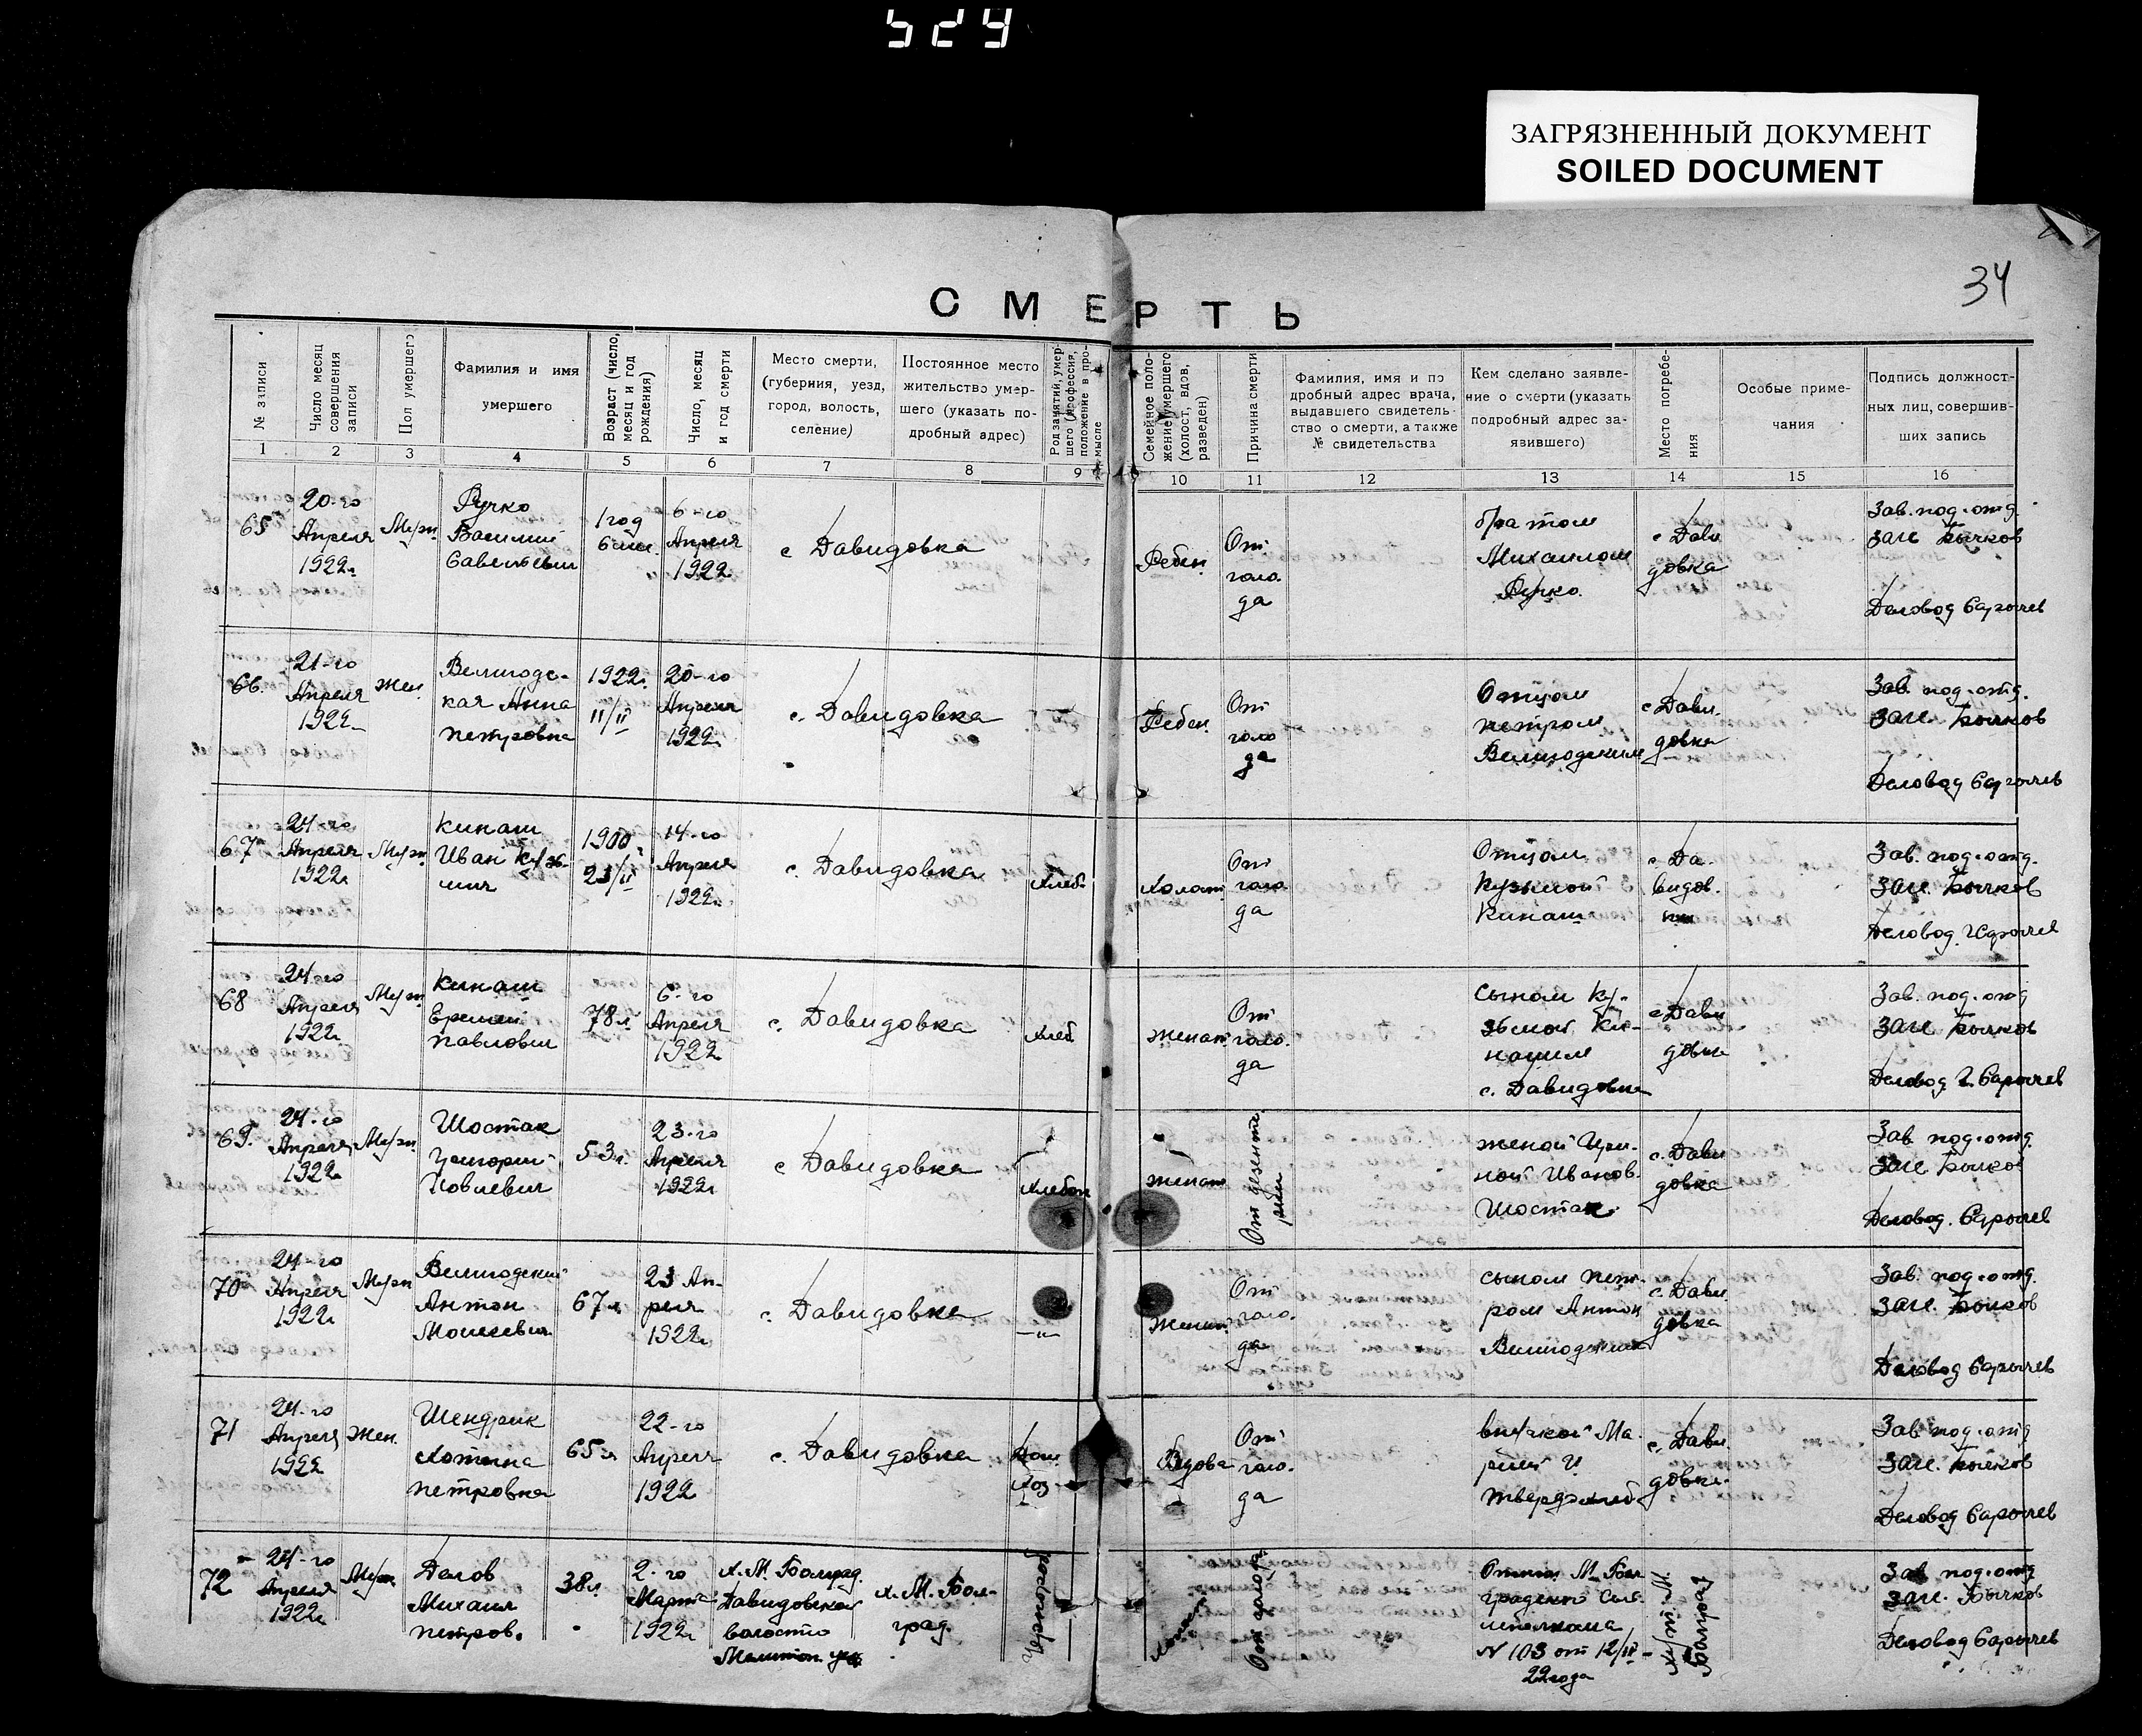 529
ЗАГРЯЗНЕННЫЙ ДОКУМЕНТ
SOILED DOCUMENT
34
СМЕРТЬ
№ записи
Число месяц
совершения
записи
Пол умершего
Фамилия и имя
умершего
Возраст (число,
месяц и год
рождения)
Число, месяц
и год смерти
Место смерти,
(губерния, уезд,
город, волость,
селение)
Постоянное место
жительство умер-
шего (указать по-
дробный адрес)
Род занятий, умер-
шего (профессия,
положение в про-
мысле
Семейное поло-
жение умершего
(холост, вдов,
разведен)
Причина смерти
Фамилия, имя и по
дробный адрес врача,
выдавшего свидетель-
ство о смерти, а также
№ свидетельства
Кем сделано заявле-
ние о смерти (указать
подробный адрес за-
явившего)
Место погребе-
ния
Особые приме-
чания
Подпись должност-
ных лиц, совершив-
ших запись
1 2 3 4 5 6 7 8 9 10 11 12 13 14 15 16
65
20-го
Апреля
1922г
Муж
Ручко
Василий
Савельевич
1 год
6 мм.
6-го
Апреля
1922
с Давидовка
Ребен.
От
голо-
да
братом
Михаилом
Ручко.
с Дави
довка
Зав. под. отд.
заге Бычков
Деловод
66.
21-го
Апреля
1922г
Жен.
кая Анна
петровна
1922г.
11/II
20-го
Апреля
1922г
с. Давидовка
Ребен.
От
голо
да
Отцом
петром
с Дави.
довка
Зав. под. отд.
заге. Бычков
Деловод
67
24-го
Апреля
1922г
Муж
Кинаш
Иван Кузь-
мич
1900г
23/II
14-го
Апреля
1922г
с. Давидовка
Хлеб
Холост
От
голо
да
Отцом
Кузьмой
Кинаш
с Да-
видов.
Зав. под. отд.
заге. Бычков
Деловод
68
24-го
Апреля
1922
Муж
Кинаш
Еремей
павлович
78л
6-го
Апреля
1922
с. Давидовка
Хлеб
женат
От
голо-
да
сыном Ку-
зьмой Ки-
нашем
с. Давидовка
с Дави
довка
Зав. под. отд
заге Бычков
Деловод
69.
24-го
Апреля
1922
Муж
Шостак
Григорий
Иовлевич
53г.
23-го
Апреля
1922г
с Давидовка
Хлебоп
женат
От дезенте
рии
женой Ири-
ной Иванов.
Шостак.
с. Дави
довка
Зав под. отд.
заге Бычков
Деловод.
70
24-го
Апреля
1922
Муж
Антон
Моисеевич
67л
23 Ап-
реля
1922г
с. Давидовка
—"—
Женат
От
голо-
да
сыном пет-
ром Антон
с. Дави
довка
Зав. под. отд.
заге. Бычков
Деловод
71
24-го
Апреля
1922
Жен.
Шендрик
Хотина
петровна
65л
22-го
Апреля
1922
с. Давидовка
Дом.
хоз
Вдова
От
голо-
да
внучкой Ма-
рией И.
с. Дави
довка
Зав. под. отд
заге. Бычков
Деловод
72
24-го
Апреля
1922г
Муж
Делов
Михаил
петров.
38л
2-го
Марта
1922г
х. М. Болград.
Давидовской
волости
Мелитоп. уез.
х. М. Бол-
град.
От голода
N 103 от 12/III-
22 года
Зав под. отд
заге. Бычков
Деловод